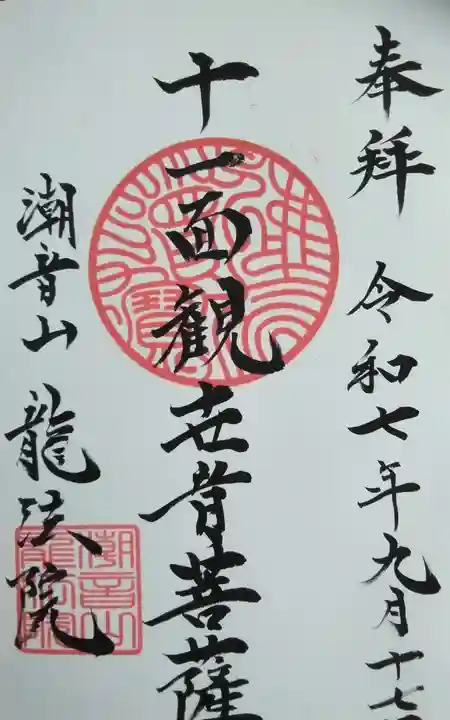 奉拜 令和七年九月十七
十一面観世音菩薩
潮音山 龍法院